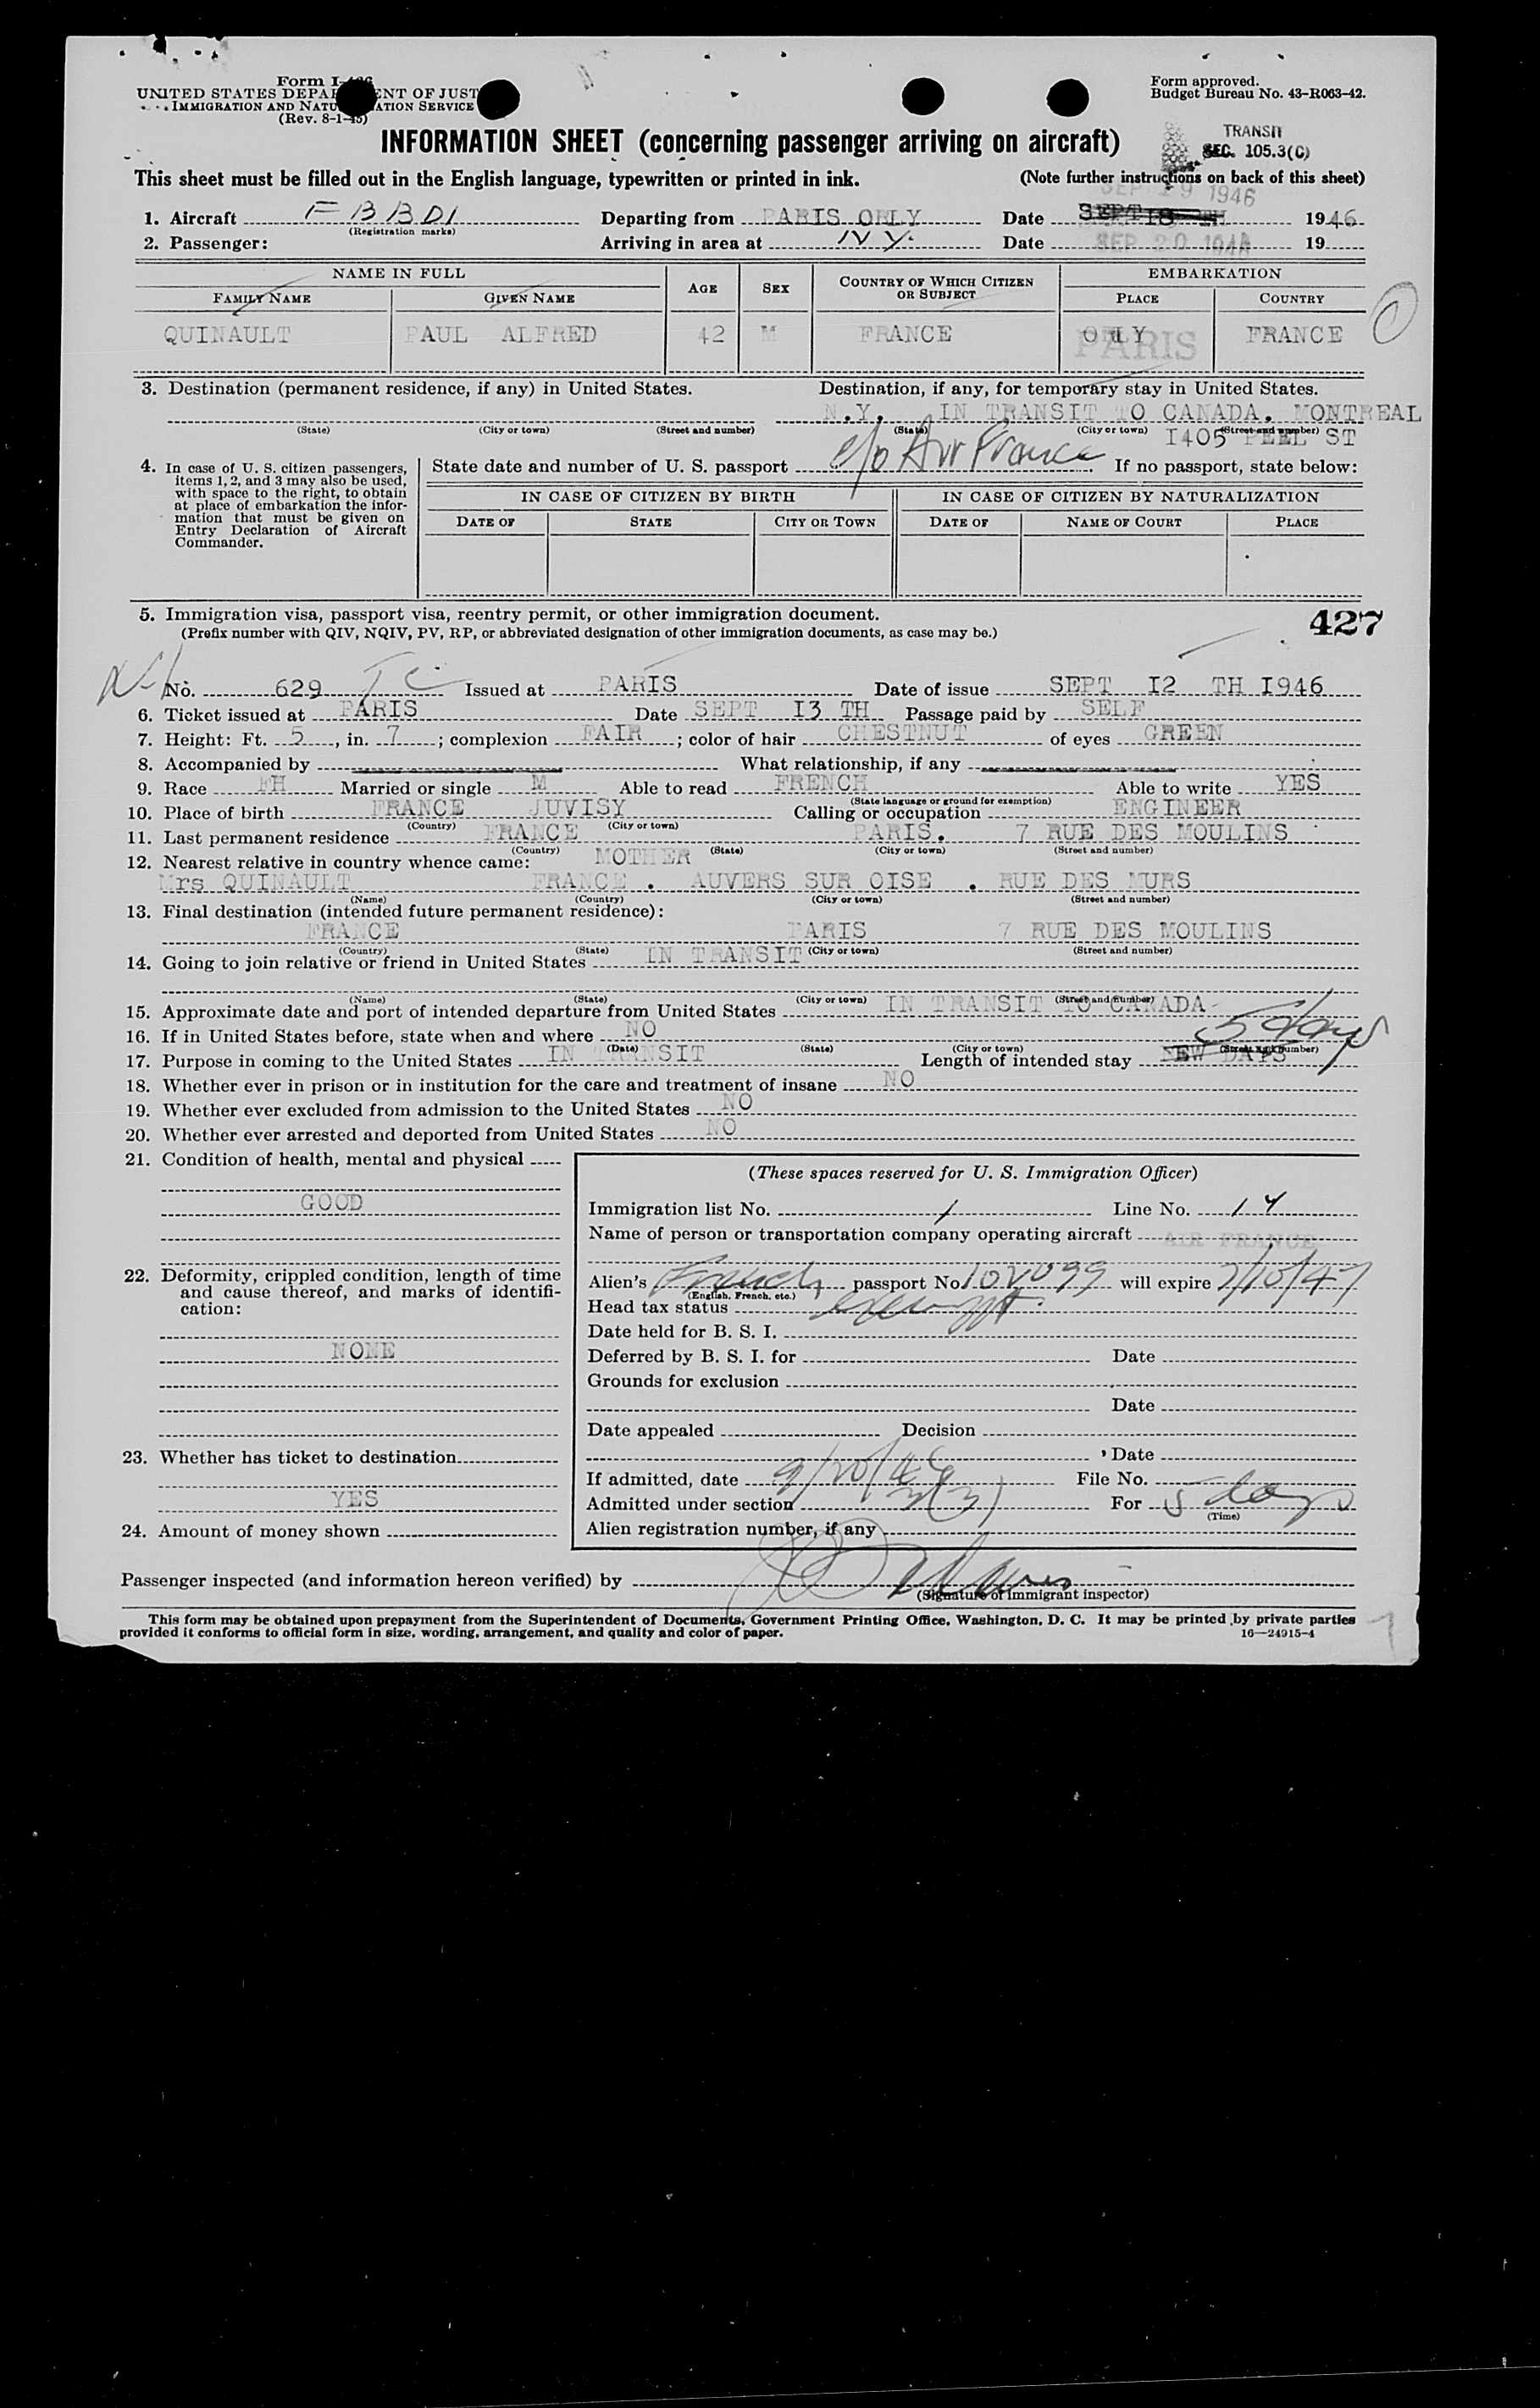 Form I-466
UNITED STATES DEPARTMENT OF JUST
IMMIGRATION AND NATURALIZATION SERVICE
(Rev. 8-1-45)
Form approved.
Budget Bureau No. 43-R063-42.
INFORMATION SHEET (concerning passenger arriving on aircraft)
TRANSIT
SEC. 105.3(C)
This sheet must be filled out in the English language, typewritten or printed in ink. (Note further instructions on back of this sheet)
SEP 19 1946
1. Aircraft F BBDI Departing from PARIS ORLY Date SEPT 18 TH 1946
(Registration marks)
2. Passenger: Arriving in area at N.Y. Date SEP 20 1946 19
NAME IN FULL AGE SEX COUNTRY OF WHICH CITIZEN OR SUBJECT EMBARKATION
FAMILY NAME GIVEN NAME PLACE COUNTRY
QUINAULT PAUL ALFRED 42 M FRANCE ORLY PARIS FRANCE
3. Destination (permanent residence, if any) in United States. Destination, if any, for temporary stay in United States.
N.Y. IN TRANSIT TO CANADA. MONTREAL
(State) (City or town) (Street and number) (State) (City or town) (Street and number)
I405 PEEL ST
c/o Air France
4. In case of U. S. citizen passengers, items 1, 2, and 3 may also be used, with space to the right, to obtain at place of embarkation the information that must be given on Entry Declaration of Aircraft Commander.
State date and number of U. S. passport If no passport, state below:
IN CASE OF CITIZEN BY BIRTH IN CASE OF CITIZEN BY NATURALIZATION
DATE OF STATE CITY OR TOWN DATE OF NAME OF COURT PLACE
5. Immigration visa, passport visa, reentry permit, or other immigration document.
(Prefix number with QIV, NQIV, PV, RP, or abbreviated designation of other immigration documents, as case may be.)
427
No. 629 TC Issued at PARIS Date of issue SEPT I2 TH I946
6. Ticket issued at PARIS Date SEPT I3 TH Passage paid by SELF
7. Height: Ft. 5, in. 7; complexion FAIR; color of hair CHESTNUT of eyes GREEN
8. Accompanied by What relationship, if any
9. Race FH Married or single M Able to read FRENCH Able to write YES
(State language or ground for exemption)
10. Place of birth FRANCE JUVISY Calling or occupation ENGINEER
(Country) (City or town)
11. Last permanent residence FRANCE PARIS. 7 RUE DES MOULINS
(Country) (State) (City or town) (Street and number)
12. Nearest relative in country whence came: MOTHER
Mrs QUINAULT FRANCE . AUVERS SUR OISE . RUE DES MURS
(Name) (Country) (City or town) (Street and number)
13. Final destination (intended future permanent residence):
FRANCE PARIS 7 RUE DES MOULINS
(Country) (State) (City or town) (Street and number)
14. Going to join relative or friend in United States IN TRANSIT
(Name) (State) (City or town) (Street and number)
15. Approximate date and port of intended departure from United States IN TRANSIT TO CANADA
16. If in United States before, state when and where NO
(Date) (State) (City or town) (Street and number)
5 days
17. Purpose in coming to the United States IN TRANSIT Length of intended stay FEW DAYS
18. Whether ever in prison or in institution for the care and treatment of insane NO
19. Whether ever excluded from admission to the United States NO
20. Whether ever arrested and deported from United States NO
21. Condition of health, mental and physical
GOOD
22. Deformity, crippled condition, length of time and cause thereof, and marks of identification:
NONE
23. Whether has ticket to destination
YES
24. Amount of money shown
(These spaces reserved for U. S. Immigration Officer)
Immigration list No. 1 Line No. 14
Name of person or transportation company operating aircraft AIR FRANCE
Alien's French passport No. 102099 will expire 7/10/47
(English, French, etc.)
Head tax status exempt
Date held for B. S. I.
Deferred by B. S. I. for Date
Grounds for exclusion
Date
Date appealed Decision
Date
If admitted, date 9/20/46 File No.
Admitted under section 3(3) For 5 days
(Time)
Alien registration number, if any
Passenger inspected (and information hereon verified) by
(Signature of immigrant inspector)
This form may be obtained upon prepayment from the Superintendent of Documents, Government Printing Office, Washington, D. C. It may be printed by private parties
provided it conforms to official form in size, wording, arrangement, and quality and color of paper. 16—24915-4